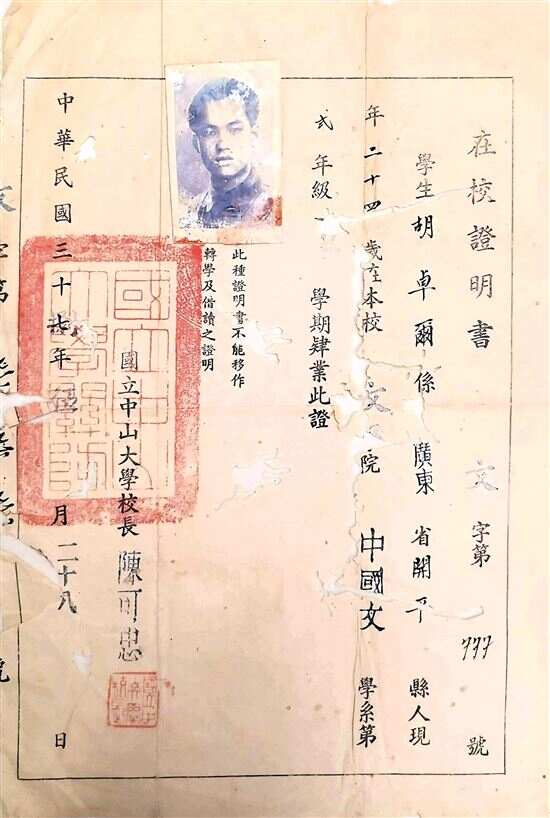 在校證明書 文字第777號
學生胡卓爾係廣東省開平縣人現
年二十四歲在本校文 院中國文學系第
弍年級 學期肄業此證
此種證明書不能移作
轉學及借讀之證明
國立中山大學校長陳可忠
中華民國三十七年 月二十八日